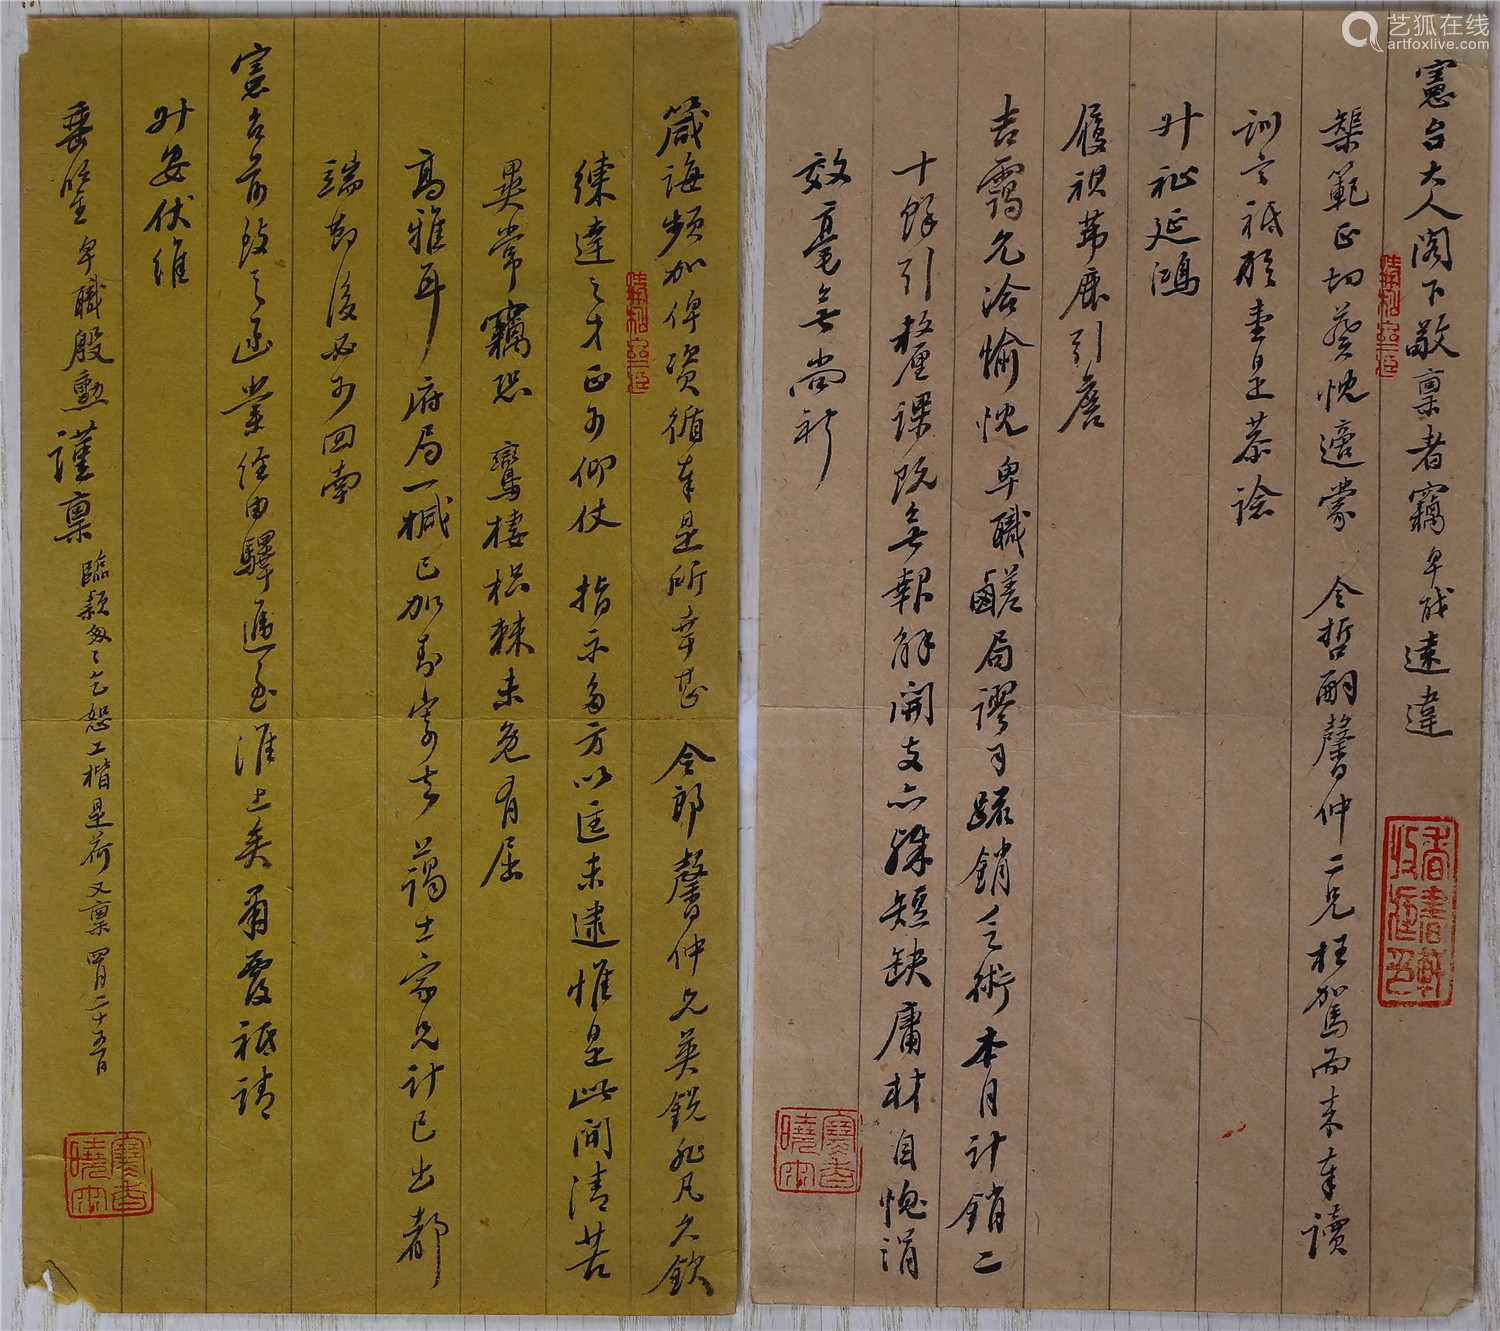 艺狐在线
artfoxlive.com
憲台大人閣下敬稟者竊卑職遠違
榘範正切葵忱適蒙 令哲嗣馨仲二兄枉駕而來奉讀
訓言祗聆壹是恭諗
升祉延鴻
履祺茀康引詹
吉靄允洽愉忱卑職鹺局謬司疏銷乏術本月計銷二
十餘引檢厘課既無報解開支亦殊短缺庸材自愧涓
效毫無尚祈
箴誨頻加俾資循奉是所幸甚 令郎馨仲兄英銳非凡久欽
練達之才正可仰仗 指示多方以匡未逮惟是此間清苦
異常竊恐 鸞棲枳棘未免有屈
高雅耳 府局一椷已加封寄去 藹士家兄計已出都
端節後必可回南
憲台前致之函業經由驛遞至淮上矣肅覆祗請
升安伏維
垂鑒 卑職殷勳謹稟 臨穎匆匆乞恕工楷是荷又稟 四月二十五日